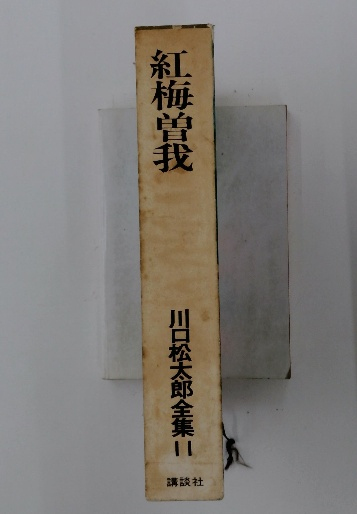 紅梅曽我
川口松太郎全集11
講談社